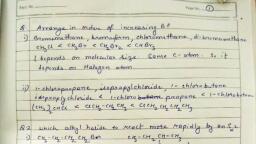 Q. Arrange in order of increasing BP
i) Bromomethane, bromoform, chloromethane, dibromomethane
CH3Cl < CH3Br < CH2Br2 < CHBr3
(depends on molecular size. Same C-atom. So, it
depends on Halogen atom
ii) 1-chloropropane, isopropylchloride, 1-chlorobutane
isopropylchloride < 1-chloropropane < 1-chlorobutane
(CH3)2CHCl < ClCH2CH2CH3 < ClCH2CH2CH2CH3
Q2 which alkyl halide to react more rapidly by SN2